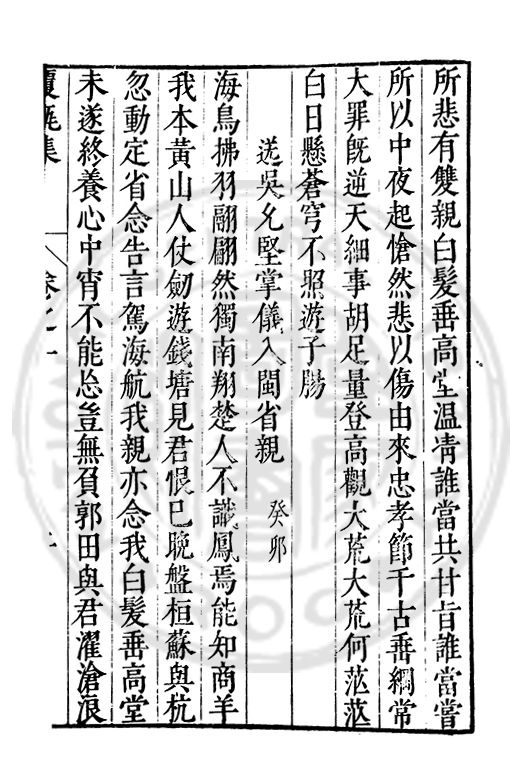 所悲有雙親白髮垂高堂温凊誰當共甘旨誰當嘗
所以中夜起愴然悲以傷由來忠孝節千古垂綱常
大罪旣逆天細事胡足量登高觀大荒大荒何茫茫
白日懸蒼穹不照遊子腸
送吳允堅掌儀入閩省親 癸卯
海鳥拂羽翮翩然獨南翔楚人不識鳳焉能知商羊
我本黃山人仗劒遊錢塘見君恨已晚盤桓蘇與杭
忽動定省念告言駕海航我親亦念我白髮垂高堂
未遂終養心中宵不能忘豈無負郭田與君濯滄浪
覆瓿集 卷之一